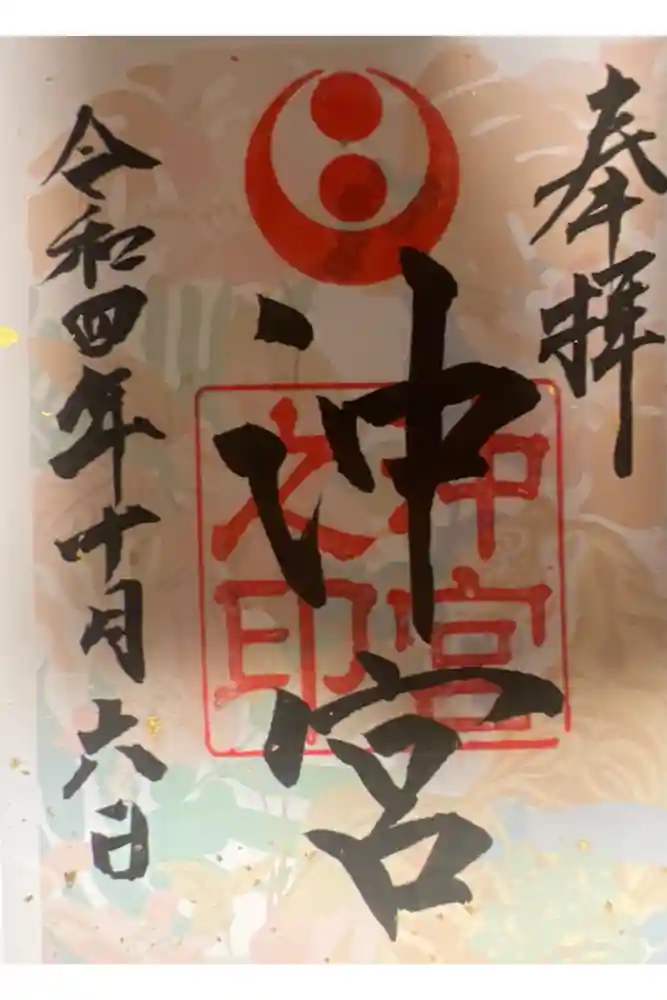 奉拝
沖宮
沖宮
之印
令和四年十月六日